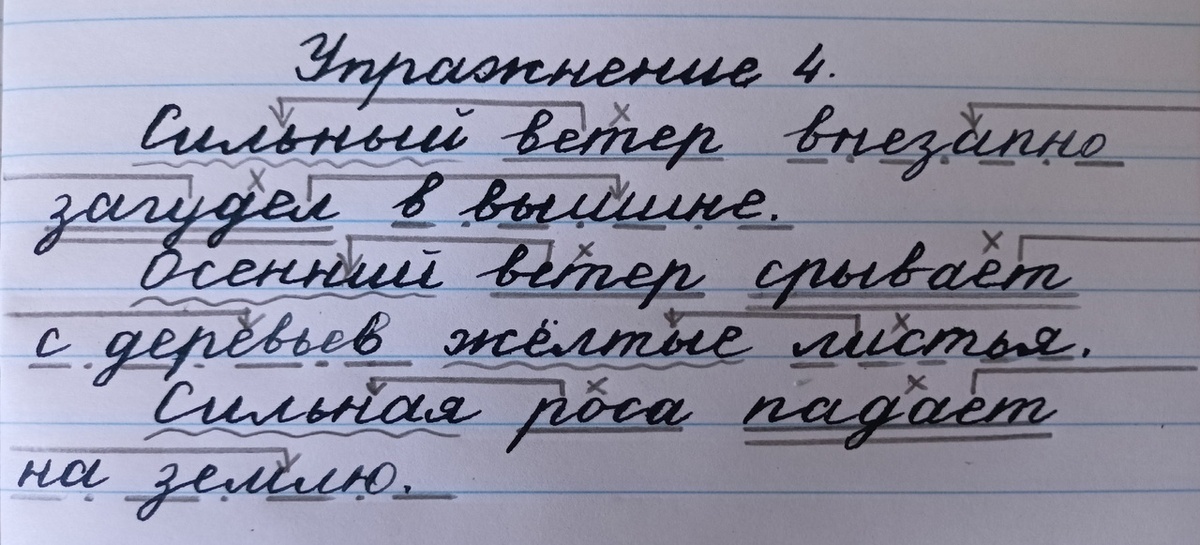 Упражнение 4.
Сильный ветер внезапно
загудел в вышине.
Осенний ветер срывает
с деревьев жёлтые листья.
Сильная роса падает
на землю.